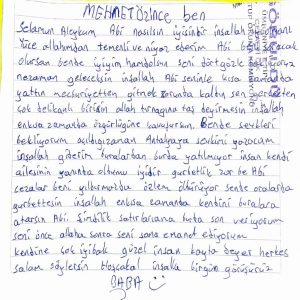 MEHMET Özince ben
Selamun Aleykum Abi nasılsın iyisindir inşallah
Yüce allahımdan temenli ve niyaz ederim Abi beni
olursan bende iyiyim hamdolsun seni dört gözle
nezaman geleceksin inşallah Abi seninle kısa zamanda
yattın mecburiyetten gitmek zorunda kaldın sen gerçekten
çok delikanlı biridin allah tırnağına taş değirmesin inşallah
enkısa zamanda özgürlüğüne kavuşursun. Bende sevkleri
bekliyorum açıldığızaman Antalyaya sevkimi yazacam
inşallah giderim buralardan burda yatılmıyor insan kendi
ailesinin yanında olnumu iyidir gurbetlik zor be Abi
cezalar beni yıldırmadı özlem öldürüyor sende oralarda
gurbettesin inşallah enkısa zamanda kendini buralara
atarsın Abi Şimdilik satırlarıma burda son veriyorum
seni önce allaha sonra seni sana emanet ediyorum
kendine çok iyibak güzel insan kayda değer herkes
selam söylersin Hoşçakal inşalla birgün görüşürüz
BABA